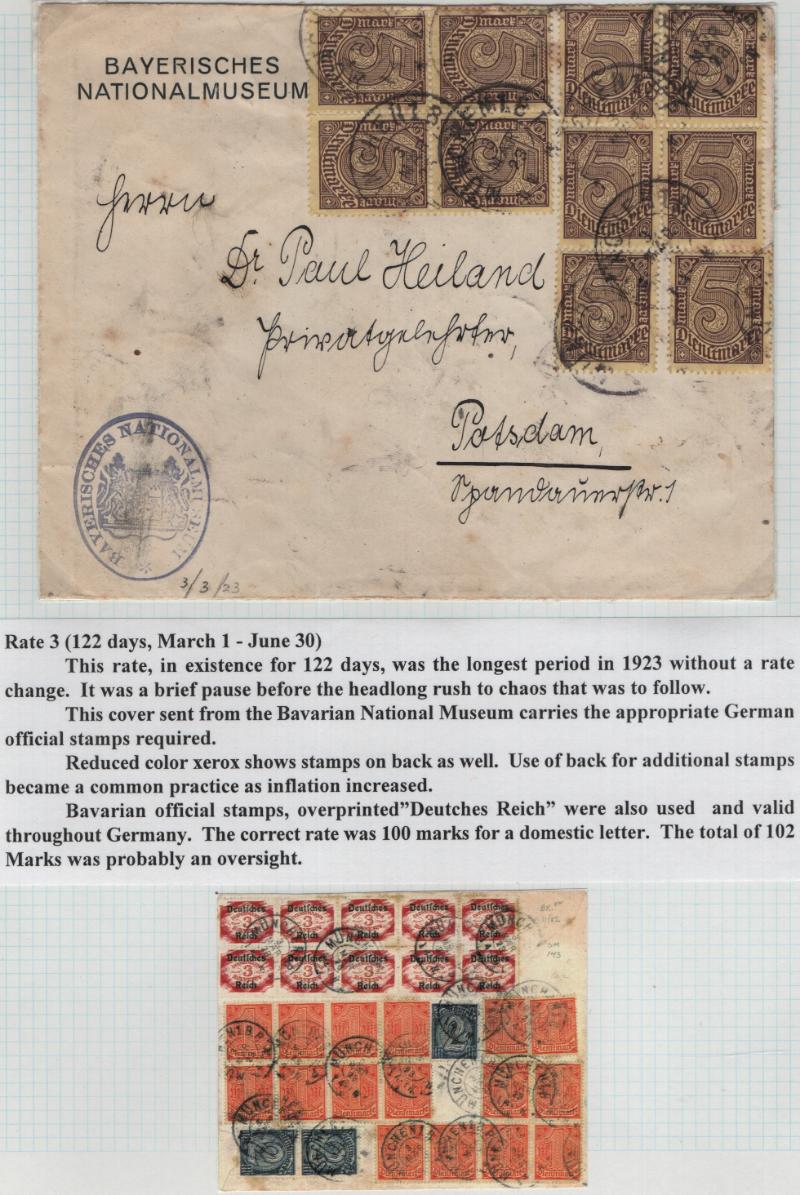 BAYERISCHES
NATIONALMUSEUM
Herrn
Dr. Paul Heiland
Privatgelehrter,
Potsdam,
Spandauerstr. 1
BAYERISCHES NATIONALMUSEUM
3/3/23
Rate 3 (122 days, March 1 - June 30)
This rate, in existence for 122 days, was the longest period in 1923 without a rate
change. It was a brief pause before the headlong rush to chaos that was to follow.
This cover sent from the Bavarian National Museum carries the appropriate German
official stamps required.
Reduced color xerox shows stamps on back as well. Use of back for additional stamps
became a common practice as inflation increased.
Bavarian official stamps, overprinted"Deutches Reich" were also used and valid
throughout Germany. The correct rate was 100 marks for a domestic letter. The total of 102
Marks was probably an oversight.
Deutsches Deutsches Deutsches Deutsches Deutsches
3 3 3 3 3
Reich Reich Reich Reich Reich
Deutsches Deutsches Deutsches Deutsches Deutsches
3 3 3 3 3
Reich Reich Reich Reich Reich